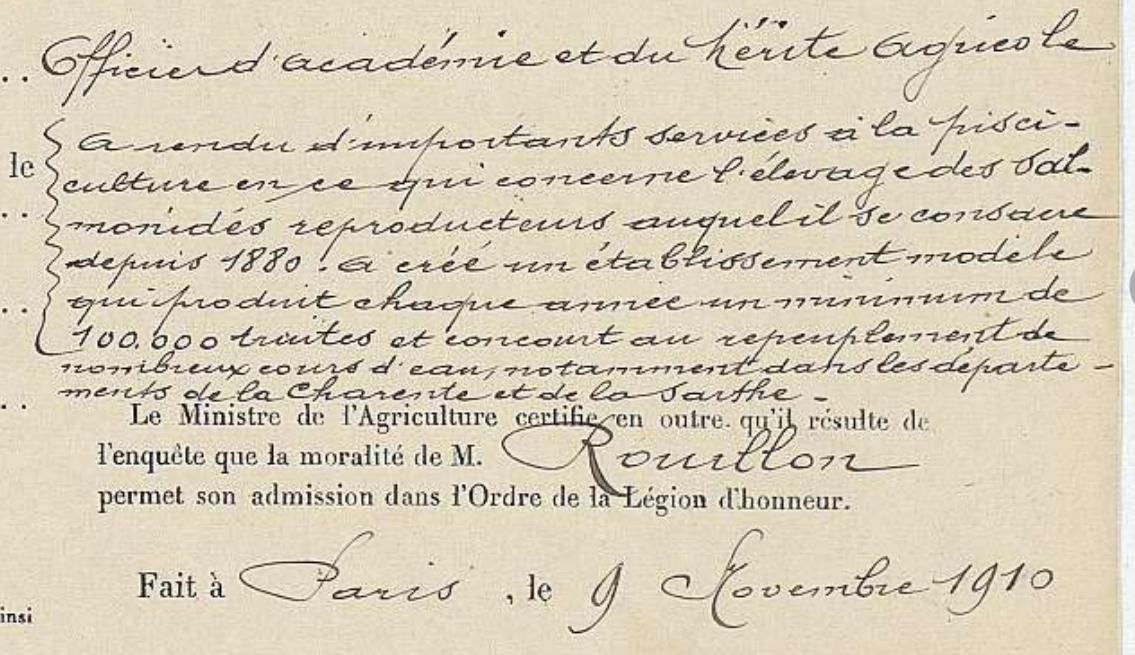 .. Officier d'académie et du Mérite Agricole
a rendu d'importants services à la pisci-
le culture en ce qui concerne l'élevage des Sal-
.. monidés reproducteurs auquel il se consacre
depuis 1880. a créé un établissement modèle
.. qui produit chaque année un minimum de
100.000 truites et concourt au repeuplement de
nombreux cours d'eau, notamment dans les départe-
.. ments de la Charente et de la Sarthe.-
Le Ministre de l'Agriculture certifie en outre qu'il résulte de
l'enquête que la moralité de M. Rouillon
permet son admission dans l'Ordre de la Légion d'honneur.
Fait à Paris, le 9 Novembre 1910
insi